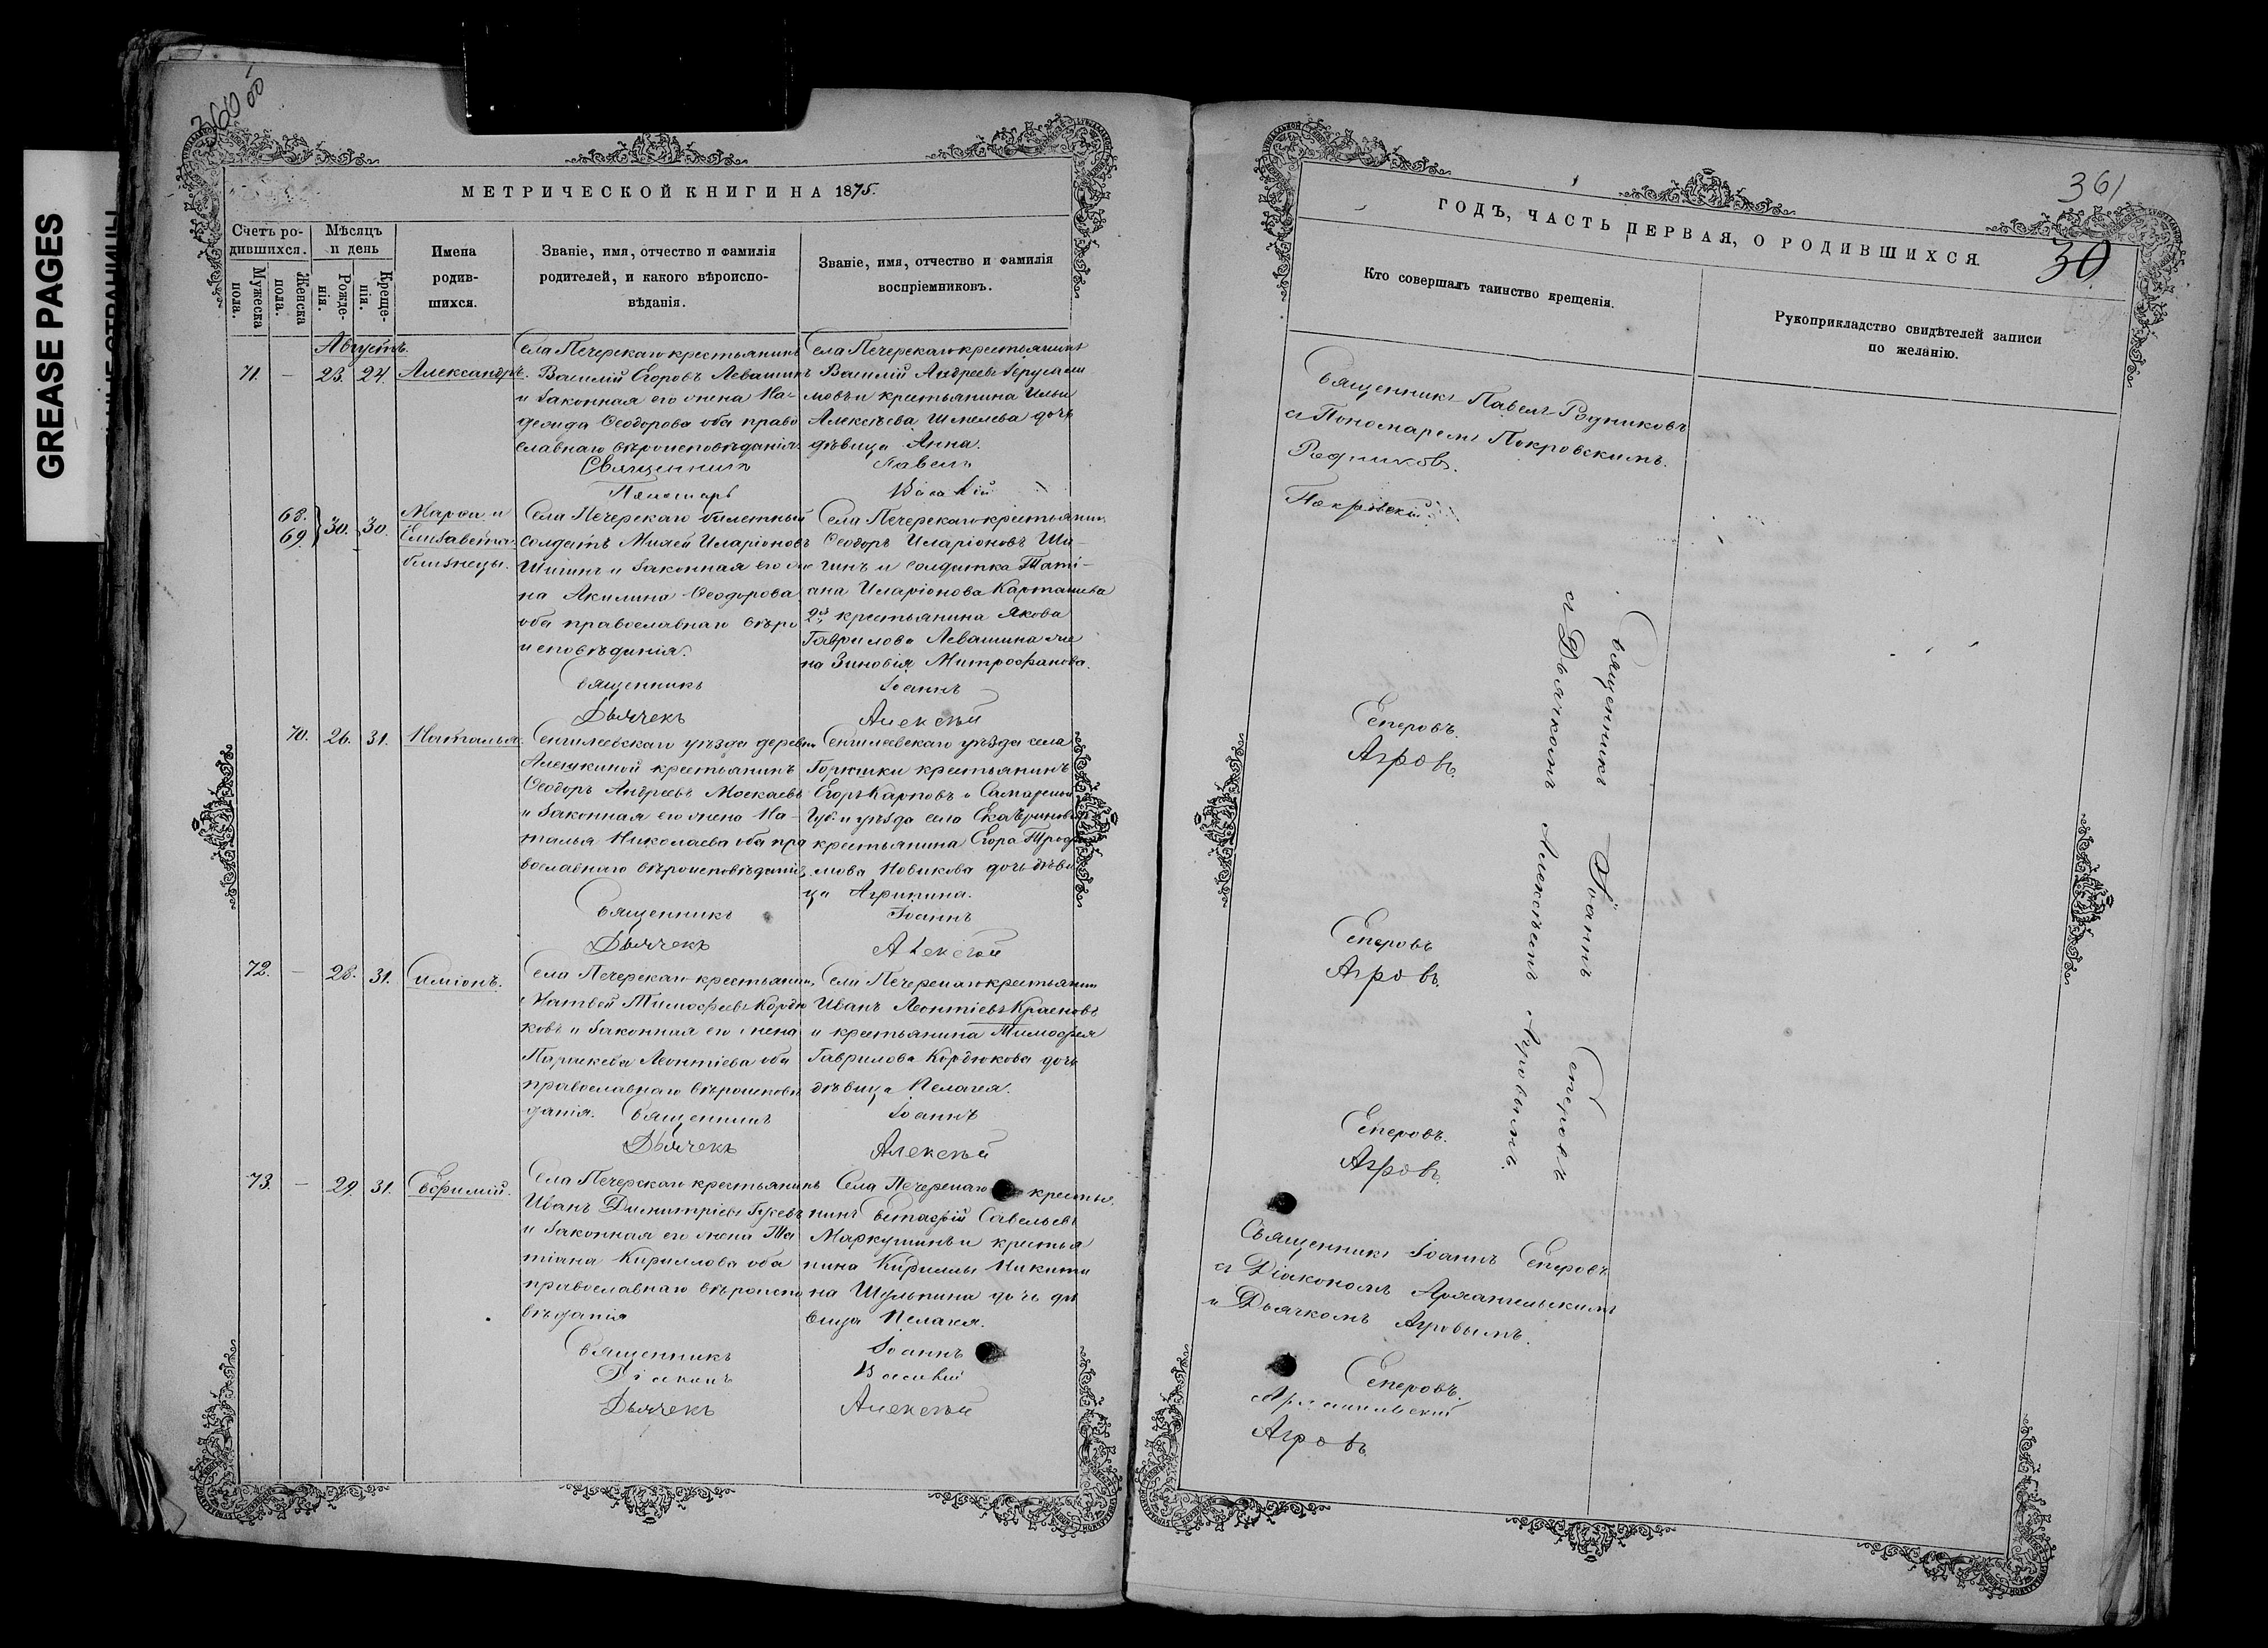 GREASE PAGES
360 об
МЕТРИЧЕСКОЙ КНИГИ НА 1875.
Счетъ ро-
дившихся.
Мѣсяцъ
и день
Мужеска
пола.
Женска
пола.
Рожде-
нія.
Креще-
нія.
Имена
родив-
шихся.
Званіе, имя, отчество и фамилія
родителей, и какого вѣроиспо-
вѣданія.
Званіе, имя, отчество и фамилія
воспріемниковъ.
Августъ.
71. — 23. 24. Александръ.
Села Печерскаго крестьянинъ
Василій Егоровъ Левашинъ
и законная его жена На-
дежда Ѳеодорова оба право
славнаго вѣроисповѣданія.
Села Печерскаго крестьянинъ
Василій Андреевъ
мовъ и крестьянина Ильи
Алексѣева Шмелева дочь
дѣвица Анна.
Священникъ Павелъ
Пономарь Василій
68.
69. 30. 30. Марѳа и
Елизавета
близнецы.
Села Печерскаго билетный
солдатъ Михей Иларіоновъ
Шишинъ и законная его же
на Акилина Ѳеодорова
оба православнаго вѣро
исповѣданія.
Села Печерскаго крестьянин
Ѳеодоръ Иларіоновъ Ши-
и солдатка Тати-
ана Иларіонова Карташева
2й, крестьянина Якова
Гаврилова Левашина же
на Зиновія Митрофанова.
Священникъ Іоаннъ
Дьячекъ Алексѣй
70. 26. 31. Наталья.
Сенгилеевскаго уѣзда деревни
Алешкиной крестьянинъ
Ѳеодоръ Андреевъ Москаевъ
и законная его жена На-
талья Николаева оба пра
вославнаго вѣроисповѣданія,
Сенгилеевскаго уѣзда села
Горюшки крестьянинъ
Егоръ Карповъ и Самарской
Губ. и уѣзда села
крестьянина Егора Троф
мова Новикова дочь дѣви
ца Агрипина.
Священникъ Іоаннъ
Дьячекъ Алексѣй
72. — 28. 31. Симіонъ.
Села Печерскаго крестьянин
Матвей Тимофеевъ Кордю
ковъ и законная его жена
Параскева Леонтіева оба
православнаго вѣроисповѣ
данія.
Села Печерскаго крестьянин
Иванъ Леонтіевъ Красновъ
и крестьянина Тимофея
Гаврилова Кордюкова дочь
дѣвица Пелагея.
Священникъ Іоаннъ
Дьячекъ Алексѣй
73. — 29. 31. Евфимій.
Села Печерскаго крестьянинъ
Иванъ Димитріевъ
и законная его жена Та
тіана Кириллова оба
православнаго вѣроиспо
вѣданія
Села Печерскаго крестья
нинъ Евстафій Савельевъ
Маркушинъ и крестья
нина Кириллы Никити
на Шульпина дочь дѣ
вица Пелагея.
Священникъ Іоаннъ
Діаконъ Василій
Дьячекъ Алексѣй
361
30.
ГОДЪ, ЧАСТЬ ПЕРВАЯ, О РОДИВШИХСЯ
Кто совершалъ таинство крещенія.
Рукоприкладство свидѣтелей записи
по желанію.
Священникъ Павелъ Родниковъ
съ Пономаремъ Покровскимъ.
Родниковъ.
Покровскій.
Священникъ Іоаннъ Сеперовъ
съ Дьячкомъ Алексѣемъ Агровымъ.
Сеперовъ.
Агровъ.
Сеперовъ
Агровъ.
Сеперовъ.
Агровъ.
Священникъ Іоаннъ Сеперовъ
съ Діакономъ Архангельскимъ
и Дьячкомъ Агровымъ.
Сеперовъ.
Архангельскій
Агровъ.